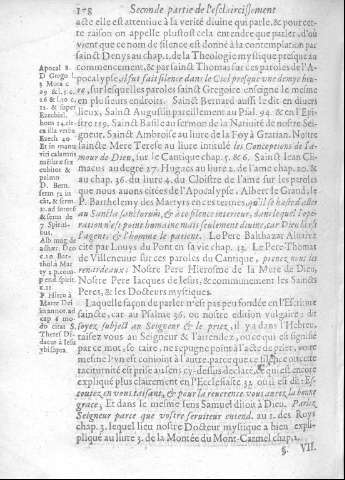 178 Seconde partie de l'esclaircissement
acte elle est attentiue à la verité diuine qui parle, & pour cet-
te raison on appelle plustost cela entendre que parler. d'où
vient que ce nom de silence est donné à la contemplation par
sainct Denys au chap. 1. de la Theologie mystique presque au
commencement, & par sainct Thomas sur ces paroles de l'A-
pocalypse, il fut fait silence dans le Ciel presque vne demye heu-
re, sur lesquelles paroles sainct Gregoire enseigne le mesme
en plusieurs endroits. Sainct Bernard aussi le dit en diuers
lieux, Sainct Augustin pareillement au Psal. 92 & en l'Epi-
stre 119. Sainct Basile au sermon de la Natiuité de nostre Sei-
gneur. Sainct Ambroise au liure de la Foy à Gratian. Nostre
saincte Mere Terese au liure intitulé les Conceptions de l'a-
mour de Dieu, sur le Cantique chap. 5. & 6. Sainct Iean Cli-
macus au degré 27. Hugues au liure 2. de l'ame chap. 20. &
au chap. 36. du liure 4. du Cloistre de l'ame sur les paroles
que nous auons citées de l'Apocalypse. Albert le Grand, le
P. Barthelemy des Martyrs en ces termes, qu'il se haste d'aller
au Sancta sanctorum, & à ce silence interieur, dans lequel l'ope-
ration n'est point humaine mais seulement diuine, car Dieu la est
l'agent & l'homme le patient. Le Pere Balthazar Aluarez
cité par Louys du Pont en sa vie chap. 13. Le Pere Thomas
de Villeneuue sur ces paroles du Cantique, prenez nous les
renardeaux: Nostre Pere Hierosme de la Mere de Dieu,
Nostre Pere Iacques de Iesus, & communement les Saincts
Peres, & les Docteurs mystiques.
Laquelle façon de parler n'est pas peu fondée en l'Escriture
saincte, car au Psalme 36. où nostre edition vulgaire dit
soyez subject au Seigneur & le priez, il y a dans l'Hebreu,
taisez vous au Seigneur & l'attendez, où ce qui est signifié
par ce mot, se taire, ne repugne point à l'acte de prier, voire
mesme l'vn est conioint à l'autre, parce que ce silence ou cette
taciturnité est prise au sens cy-dessus declaré, & qui est encore
expliqué plus clairement en l'Ecclesiaste 32. où il est dit: Es-
coutez en vous taisant, & pour la reuerence vous aurez la bonne
grace, Et dans le mesme sens Samuel disoit à Dieu. Parlez
Seigneur parce que vostre seruiteur entend. au 1. des Roys
chap. 3. lequel lieu nostre Docteur mystique a bien expli-
pliqué au liure 3. de la Montée du Mont-Carmel chap. 2.
§. VII.
Apocal 8.
D Grego l
3 Mora c.
Ezechiel.
hom 14. circ
ex illa verba
Ezech 40
D. Bern.
& serm de
7. Spiriti-
bus.
P. Hiero à
Matre Dei